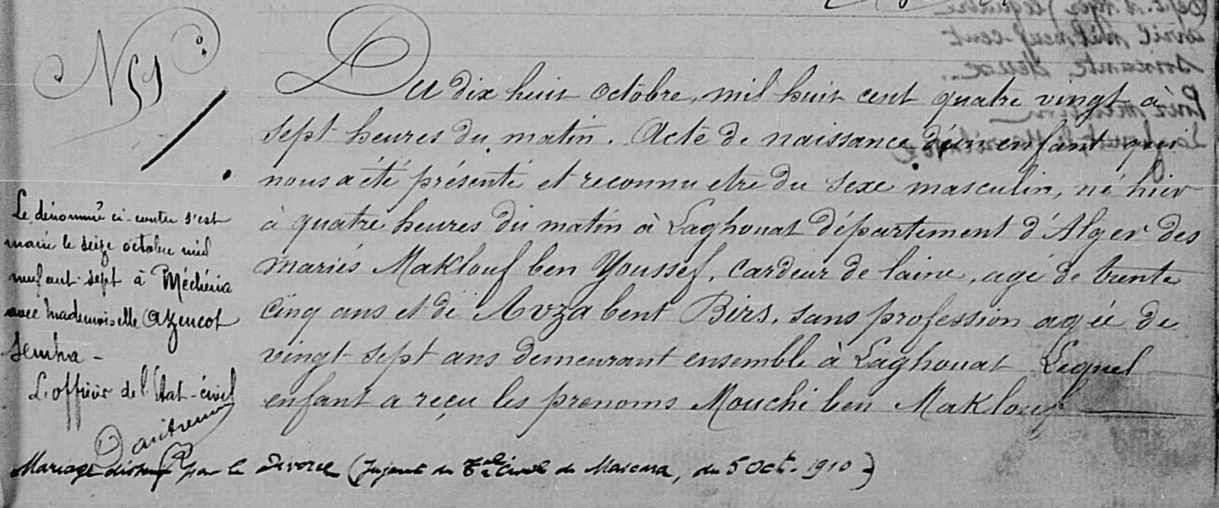 N 51
Du dix huit octobre, mil huit cent quatre vingt a
sept heures du matin. Acte de naissance d'un enfant qui
nous a été présenté et reconnu etre du sexe masculin, né hier
à quatre heures du matin à Laghouat département d'Alger des
mariés Maklouf ben Youssef, cardeur de laine, agé de trente
cinq ans et de Avza bent Birs, sans profession agée de
vingt sept ans demeurant ensemble à Laghouat Lequel
enfant a reçu les prenoms Mouchi ben Maklouf
Le dénommé ci-contre s'est
marié le seize octobre mil
neuf cent sept à Méchéria
avec mademoiselle Azencot
Semha -
L'officier de l'État-civil
Mariage dissous par le divorce (Jugement du Tal Civil de Mascara, du 5 Oct. 1910)
sept. à Alger
avril mil neuf cent
soixante deux.